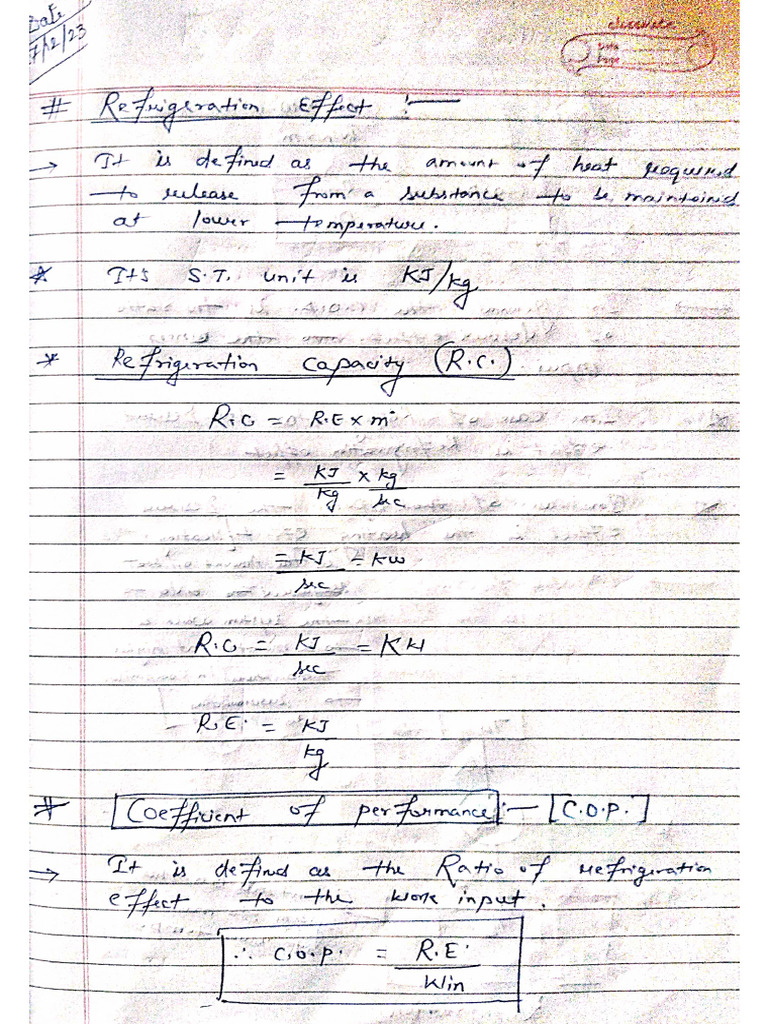 Date
7/12/23
classmate
Date
Page
# Refrigeration Effect :—
→ It is defined as the amount of heat required
to release from a substance to be maintained
at lower temperature.
* Its S.I. unit is KJ/kg
* Refrigeration capacity (R.C.)
R.C = R.E x ṁ
= KJ/kg x kg/sec
= KJ/sec = KW
R.C = KJ/sec = KW
R.E. = KJ/kg
# Coefficient of performance :— [C.O.P.]
→ It is defined as the Ratio of refrigeration
effect to the work input.
∴ C.O.P. = R.E./Win